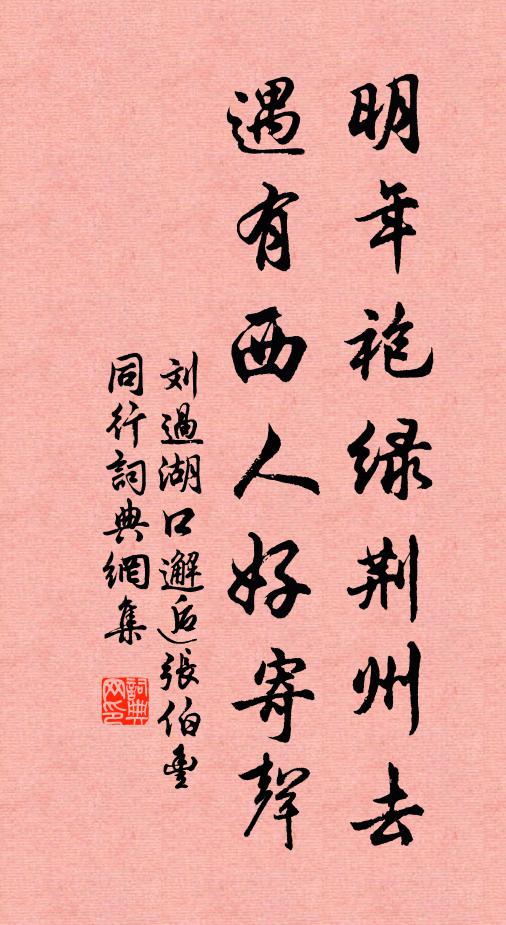 明年袍绿荆州去
遇有西人好寄聲
刘過湖口邂逅張伯豐
同行詞典網集
詞典网印